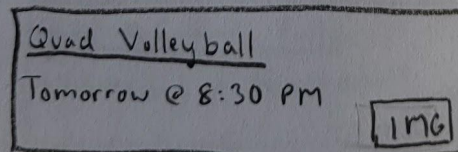 Quad Volleyball
Tomorrow @ 8:30 PM
IMG